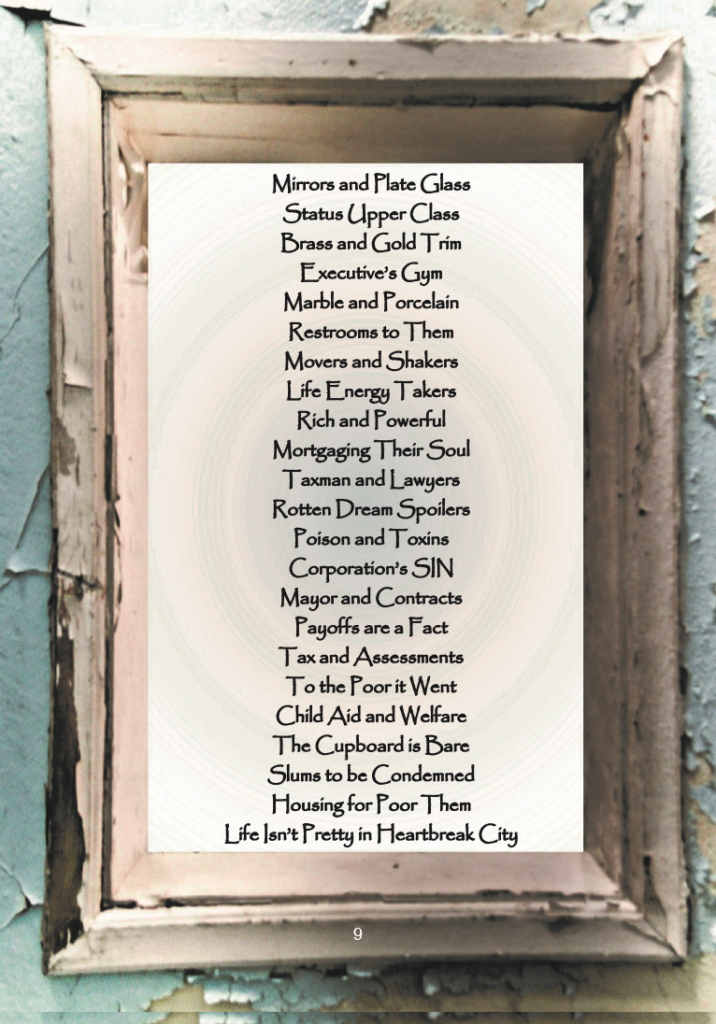 Mirrors and Plate Glass
Status Upper Class
Brass and Gold Trim
Executive's Gym
Marble and Porcelain
Restrooms to Them
Movers and Shakers
Life Energy Takers
Rich and Powerful
Mortgaging Their Soul
Taxman and Lawyers
Rotten Dream Spoilers
Poison and Toxins
Corporation's SIN
Mayor and Contracts
Payoffs are a Fact
Tax and Assessments
To the Poor it Went
Child Aid and Welfare
The Cupboard is Bare
Slums to be Condemned
Housing for Poor Them
Life Isn't Pretty in Heartbreak City
9